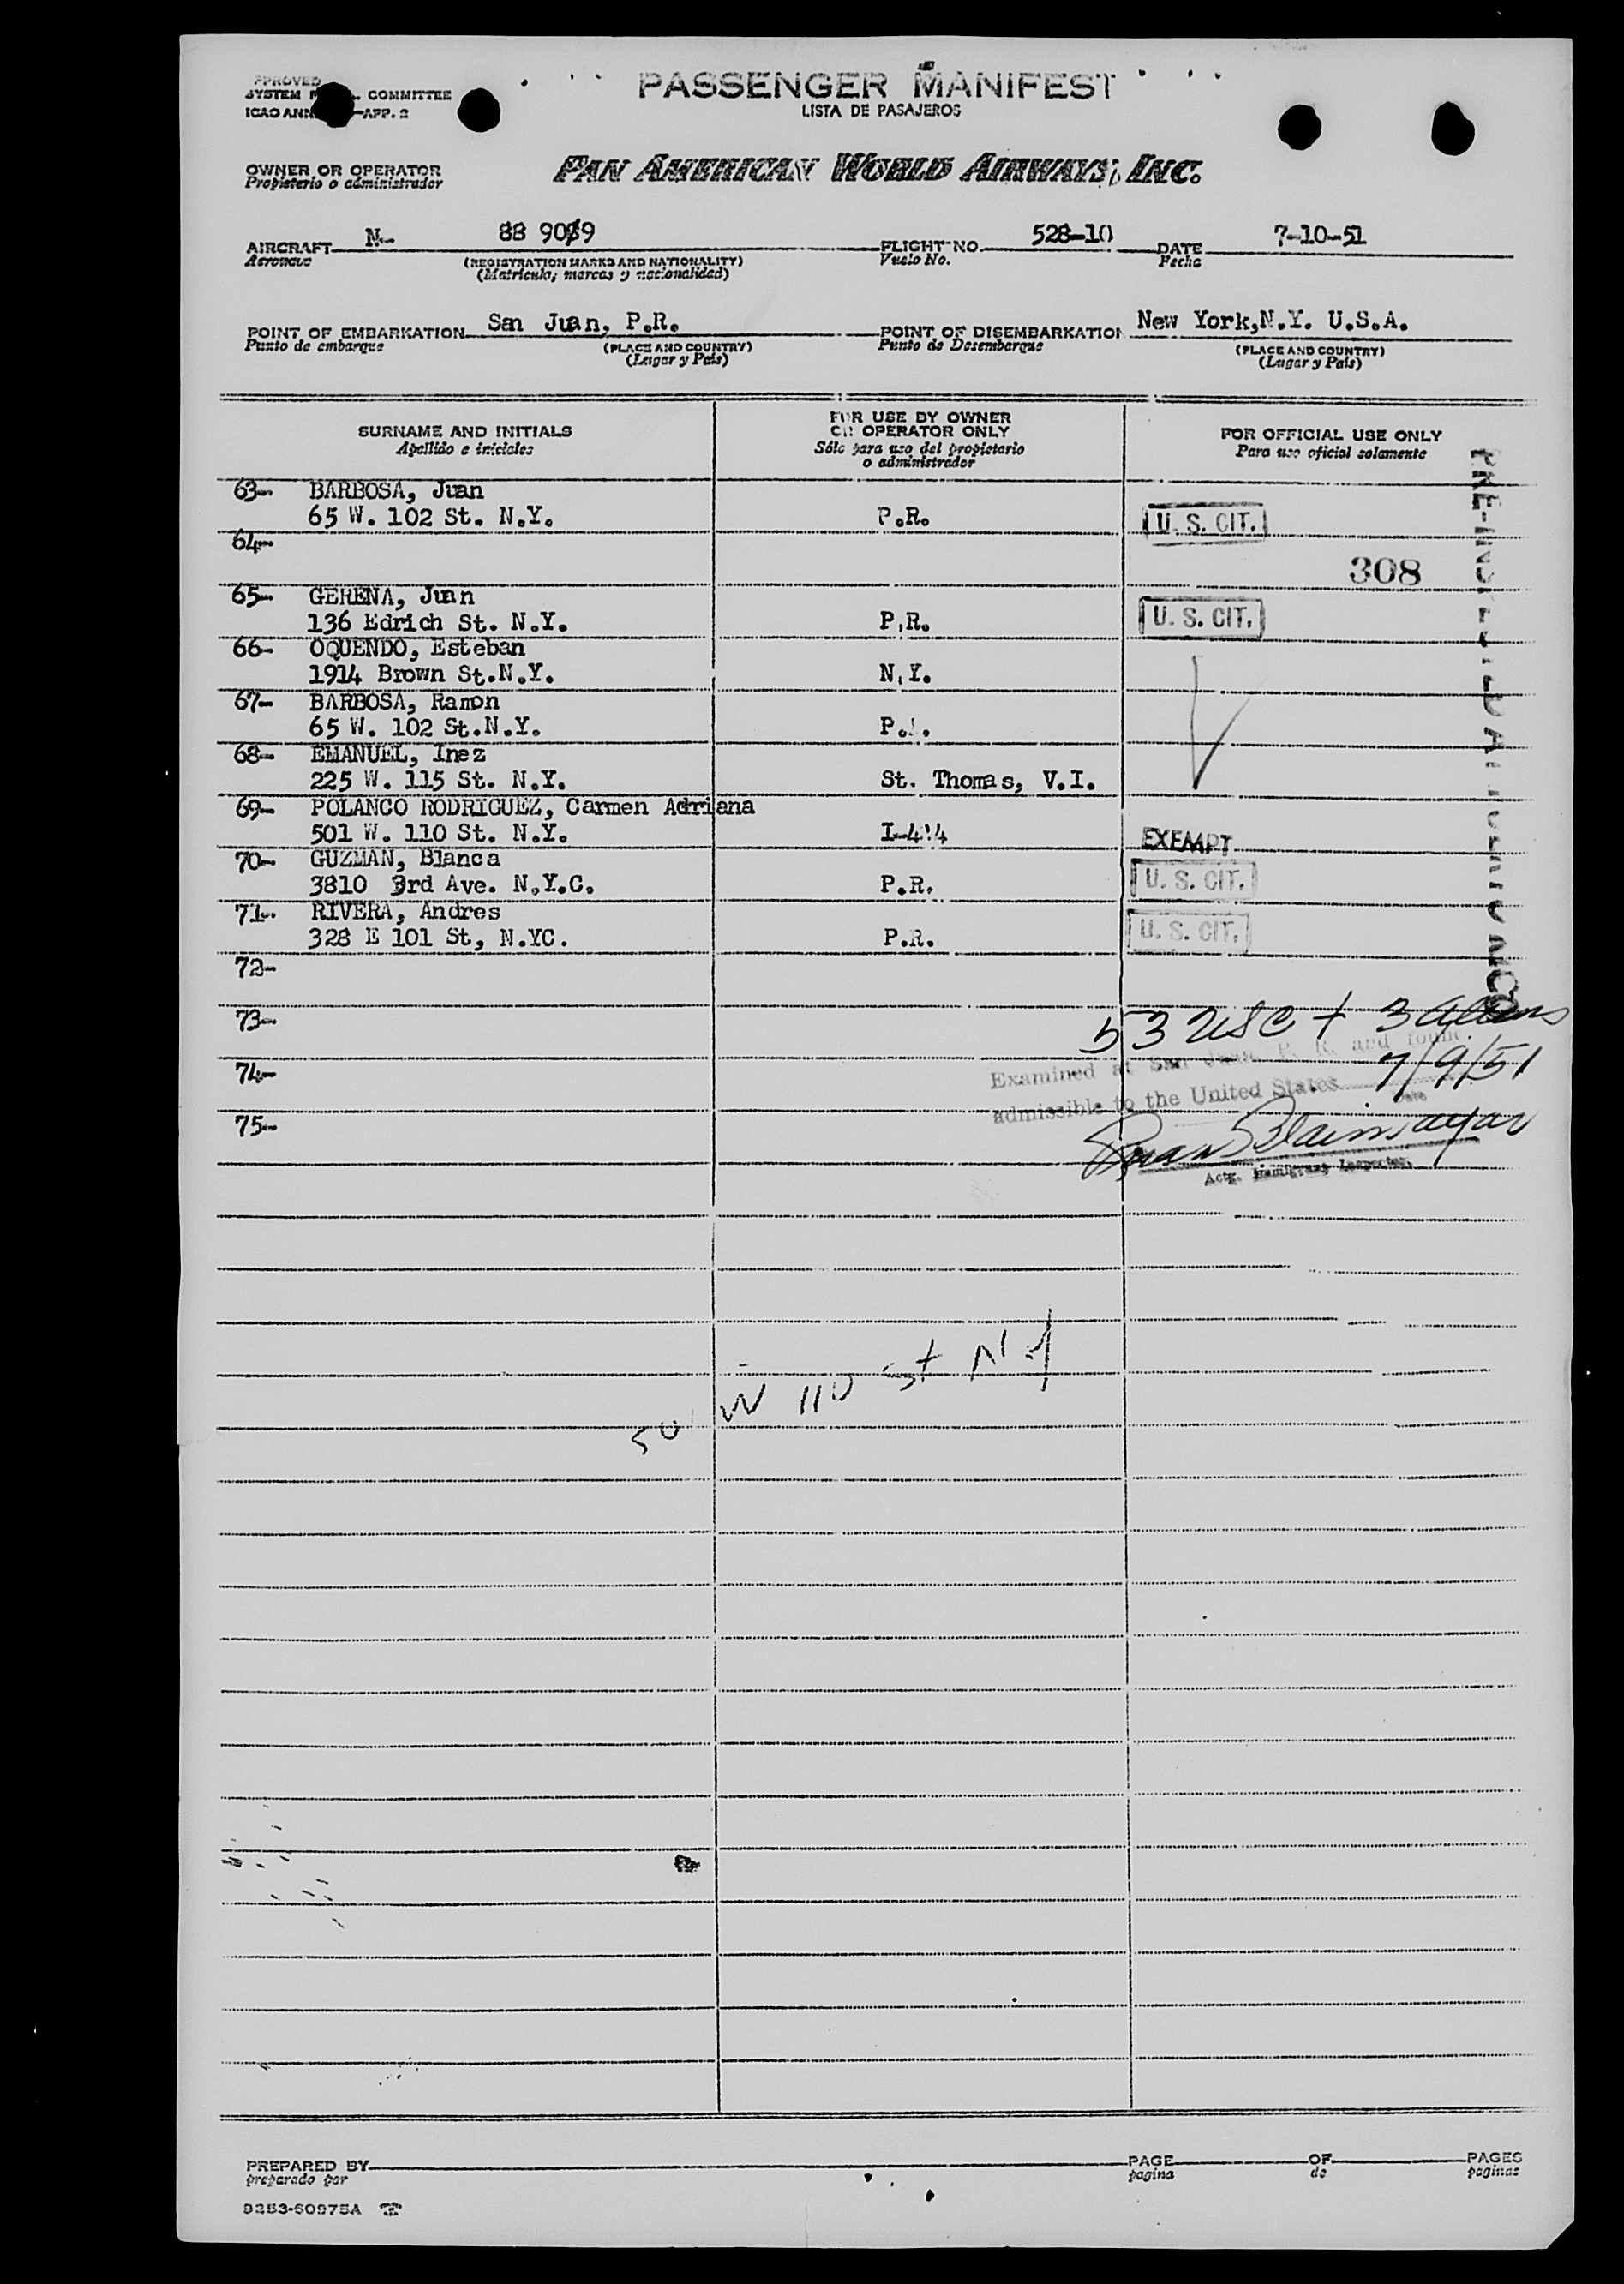 PASSENGER MANIFEST
LISTA DE PASAJEROS
APPROVED
SYSTEM COMMITTEE
ICAO APP. 2
OWNER OR OPERATOR
Propietario o administrador
PAN AMERICAN WORLD AIRWAYS, INC.
AIRCRAFT N- 88 9089 FLIGHT NO. 528-10 DATE 7-10-51
Aeronave (REGISTRATION MARKS AND NATIONALITY) Vuelo No. Fecha
(Matrícula, marcas y nacionalidad)
POINT OF EMBARKATION San Juan, P.R. POINT OF DISEMBARKATION New York,N.Y. U.S.A.
Punto de embarque (PLACE AND COUNTRY) Punto de Desembarque (PLACE AND COUNTRY)
(Lugar y País) (Lugar y País)
SURNAME AND INITIALS
Apellido e iniciales
FOR USE BY OWNER
OR OPERATOR ONLY
Sólo para uso del propietario
o administrador
FOR OFFICIAL USE ONLY
Para uso oficial solamente
63- BARBOSA, Juan
65 W. 102 St. N.Y. P.R. U. S. CIT.
64-
308
65- GERENA, Juan
136 Edrich St. N.Y. P.R. U. S. CIT.
66- OQUENDO, Esteban
1914 Brown St.N.Y. N.Y.
67- BARBOSA, Ramon
65 W. 102 St.N.Y. P.
68- EMANUEL, Inez
225 W. 115 St. N.Y. St. Thomas, V.I.
69- POLANCO RODRIGUEZ, Carmen Adriana
501 W. 110 St. N.Y. EXEMPT
70- GUZMAN, Blanca
3810 3rd Ave. N.Y.C. P.R. U. S. CIT.
71- RIVERA, Andres
328 E 101 St, N.YC. P.R. U. S. CIT.
72-
73-
53 USC + 3 aliens
74-
Examined at San Juan, P. R. and found
admissible to the United States 7/9/51
Date
75-
Actg. Immigrant Inspector
501 W 110 St N.Y
PREPARED BY PAGE OF PAGES
preparado por pagina de paginas
9253-60975A